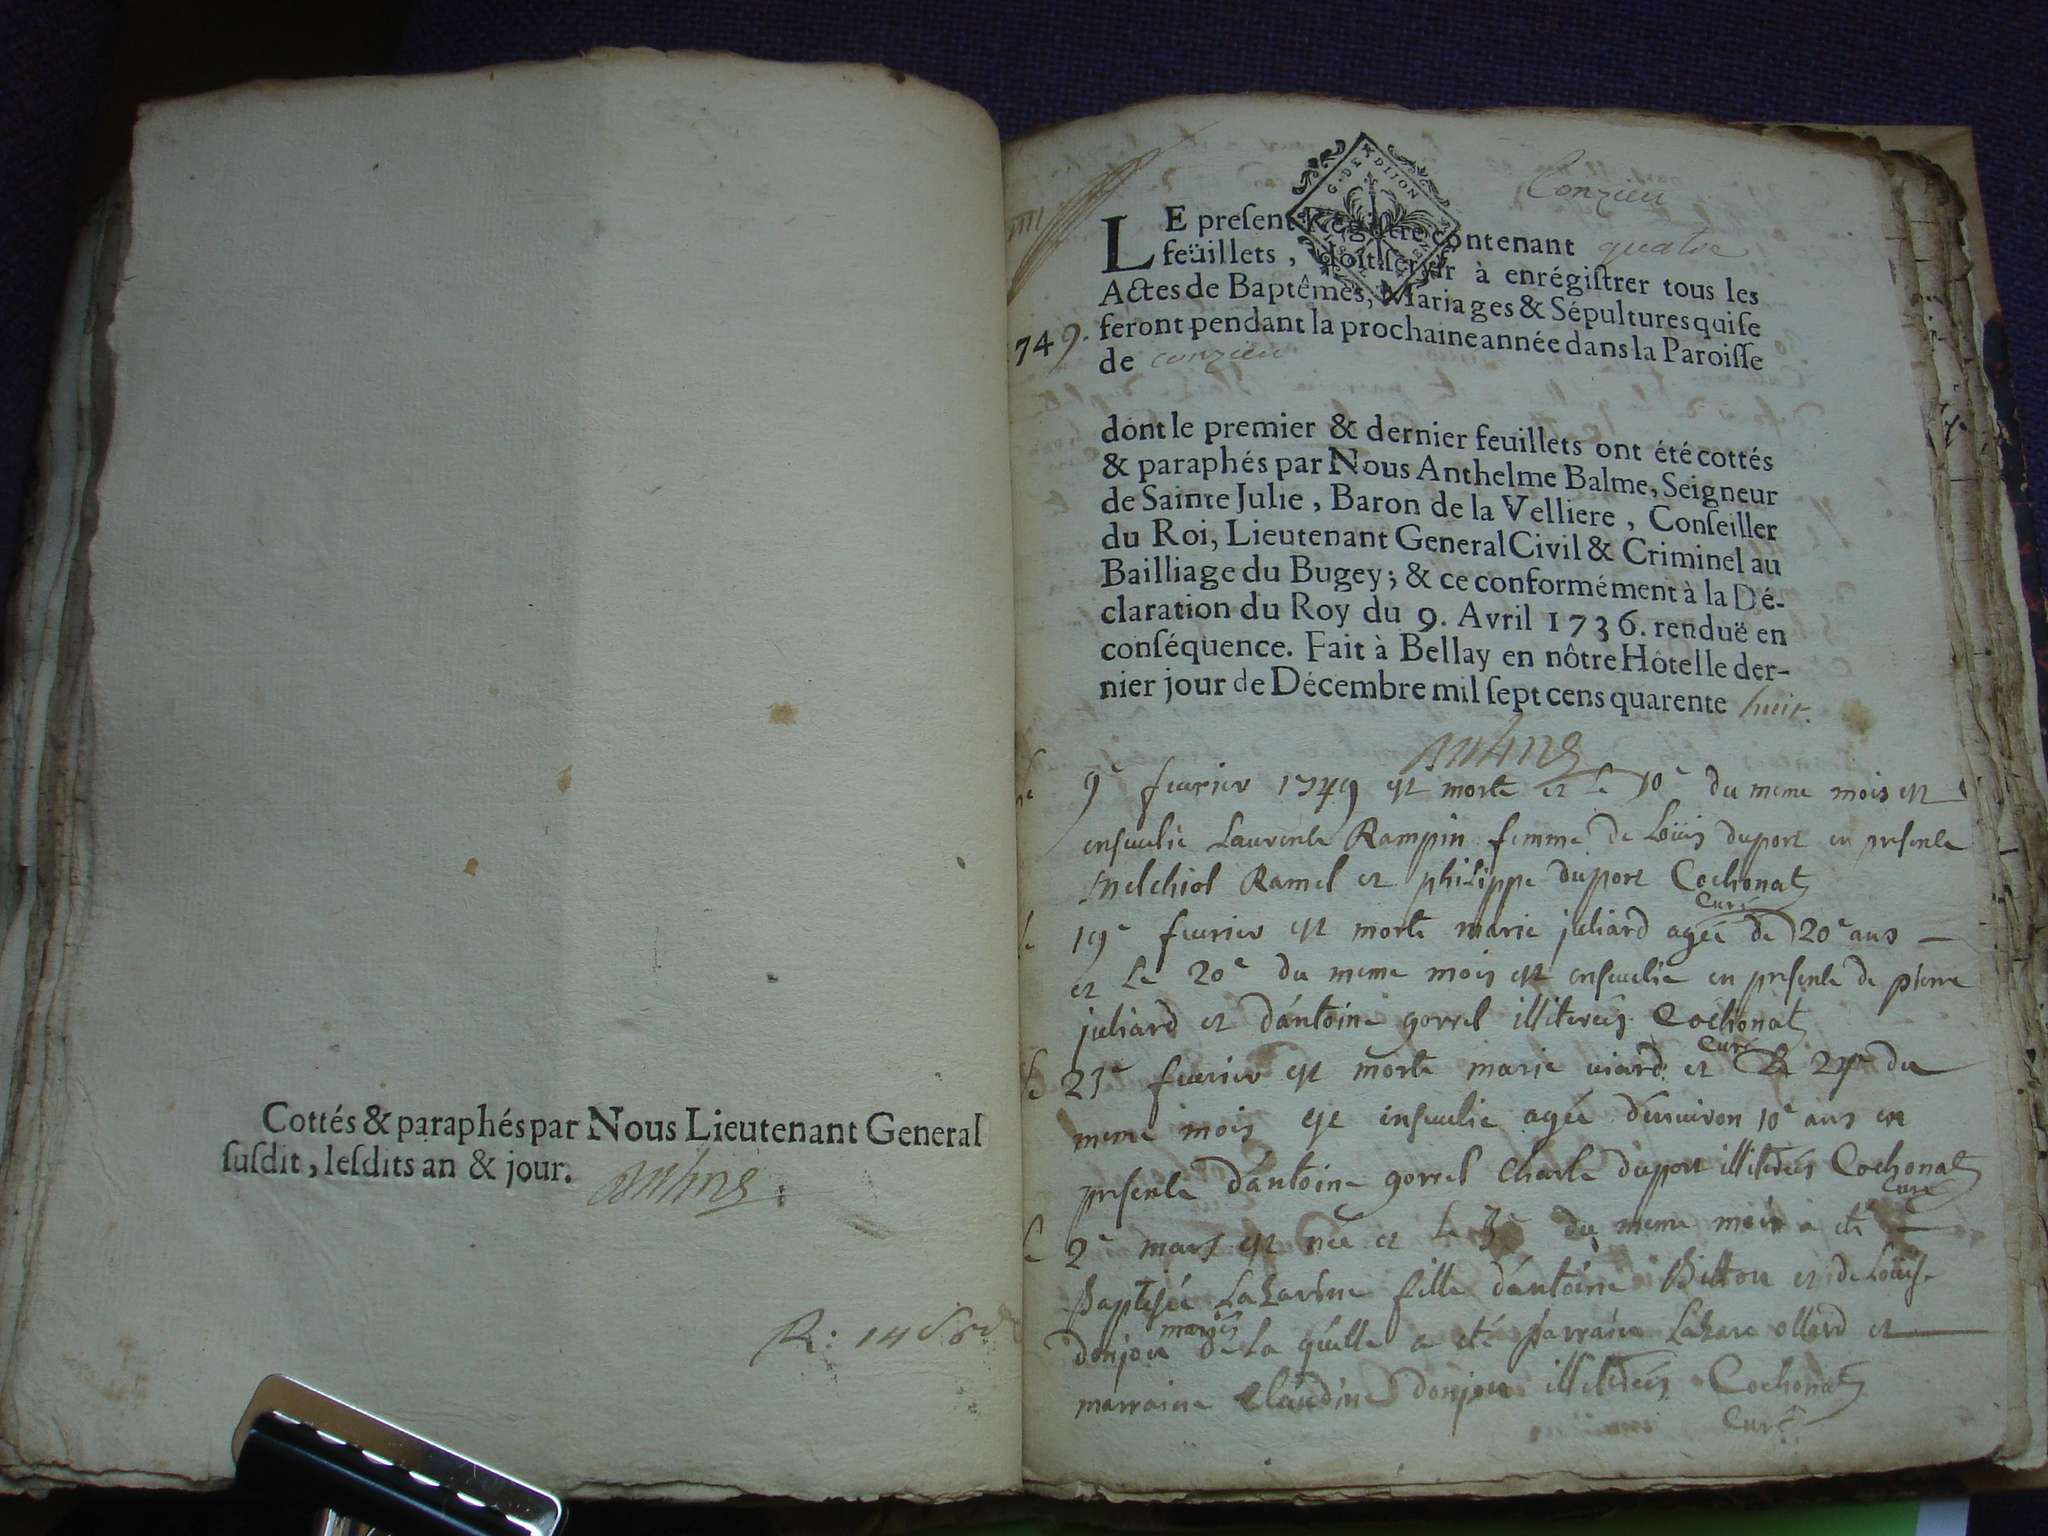 Cottés & paraphés par Nous Lieutenant General
ſuſdit, leſdits an & jour.
R: 14
Conzieu
G. DE DIJON
LE preſent Regiſtre contenant quatre
feüillets, doit ſervir à enrégiſtrer tous les
Actes de Baptêmes, Mariages & Sépultures qui ſe
749. feront pendant la prochaine année dans la Paroiſſe
de conzieu
dont le premier & dernier feuillets ont été cottés
& paraphés par Nous Anthelme Balme, Seigneur
de Sainte Julie, Baron de la Velliere, Conſeiller
du Roi, Lieutenant General Civil & Criminel au
Bailliage du Bugey; & ce conformément à la Dé-
claration du Roy du 9. Avril 1736. renduë en
conſéquence. Fait à Bellay en nôtre Hôtel le der-
nier jour de Décembre mil ſept cens quarente huit.
le 9e feurier 1749 est morte et le 10e du meme mois est
enseuelie Laurente Rampin femme de Loüis duport en presente
Melchiol Ramel et philippe duport Cochonat
Curé
le 19e feurier est morte marie juliard agée de 20e ans
et Le 20e du meme mois est enseuelie en presente de pierre
juliard et d'antoine gorrel illiterés Cochonat
Curé
le 23e feurier est morte marie uiard et Le 24e du
meme mois est enseuelie agée d'enuiron 10e ans en
presente d'antoine gorrel Charle duport illiterés Cochonat
Curé
le 2e mars est née et le 3e du meme mois a eté
Baptisée Lazarine fille d'antoine Bitton et de Loüise
donjou mariés de La quelle a eté parrain Lazare ollard et
marraine Claudine donjou illiterés Cochonat
Curé